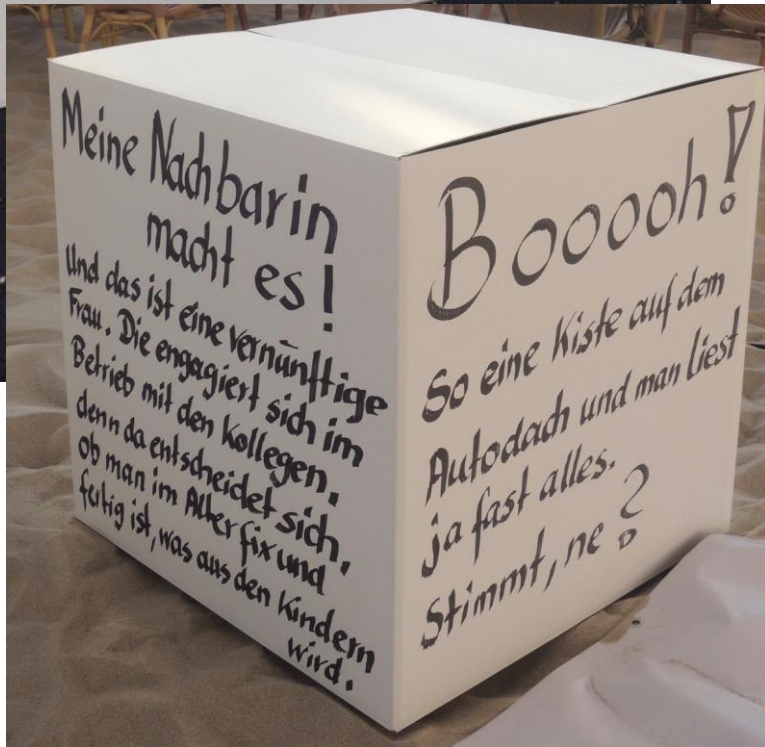 Meine Nachbarin
macht es!
Und das ist eine vernünftige
Frau. Die engagiert sich im
Betrieb mit den Kollegen,
denn da entscheidet sich,
ob man im Alter fix und
fertig ist, was aus den Kindern
wird.
Booooh!
So eine Kiste auf dem
Autodach und man liest
ja fast alles.
Stimmt, ne?